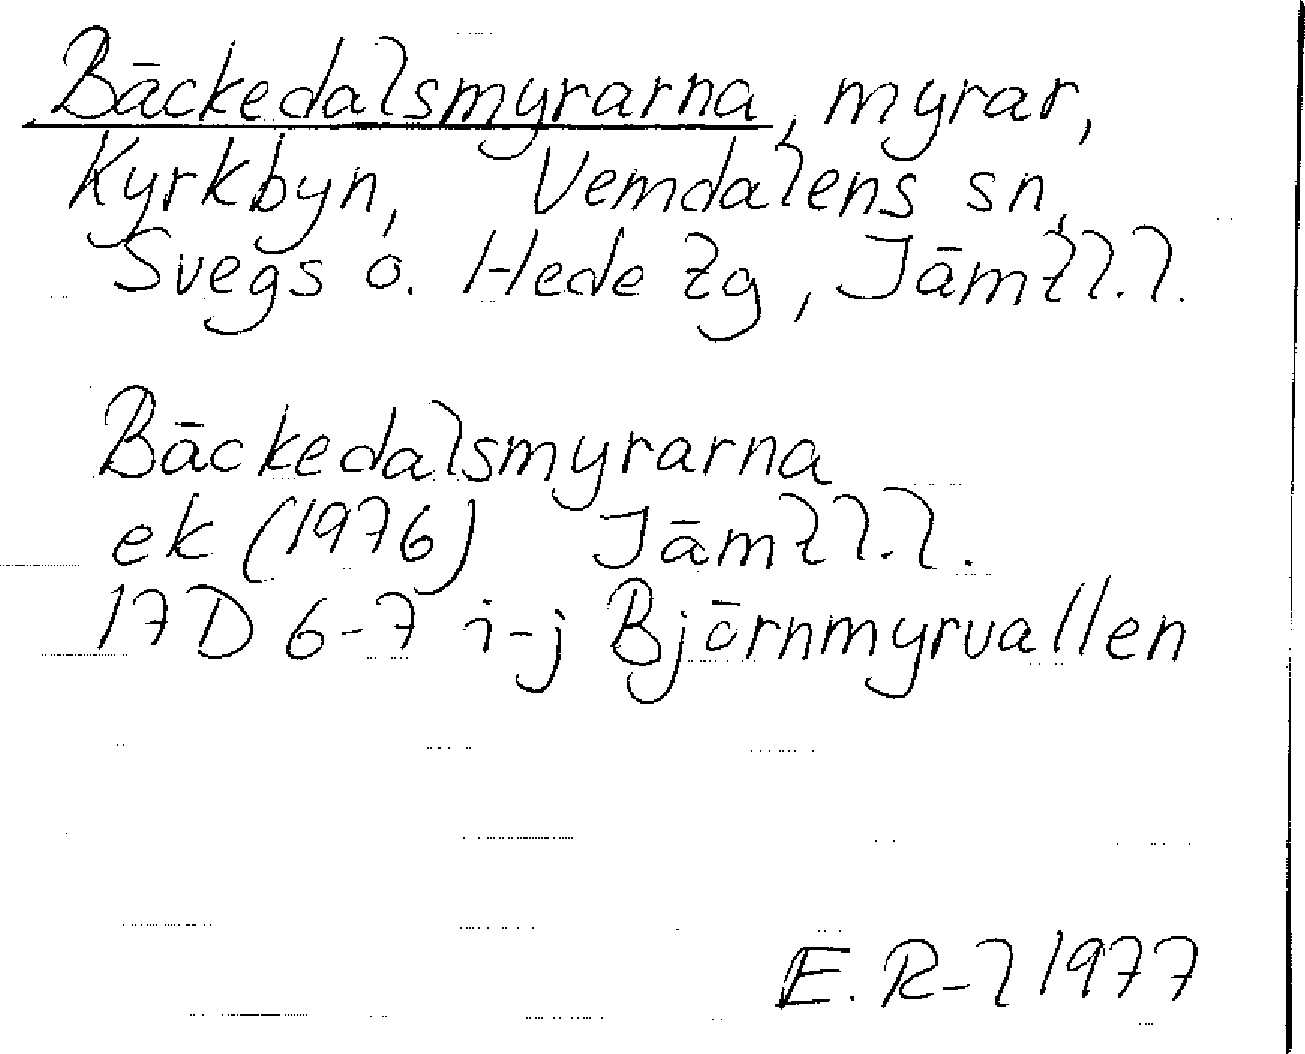 Bäckedalsmyrarna, myrar,
Kyrkbyn, Vemdalens sn,
Svegs o. Hede tg, Jämtl.l.
Bäckedalsmyrarna
ek (1976) Jämtl.l.
17D 6-7 i-j Björnmyrvallen
E. R-l 1977